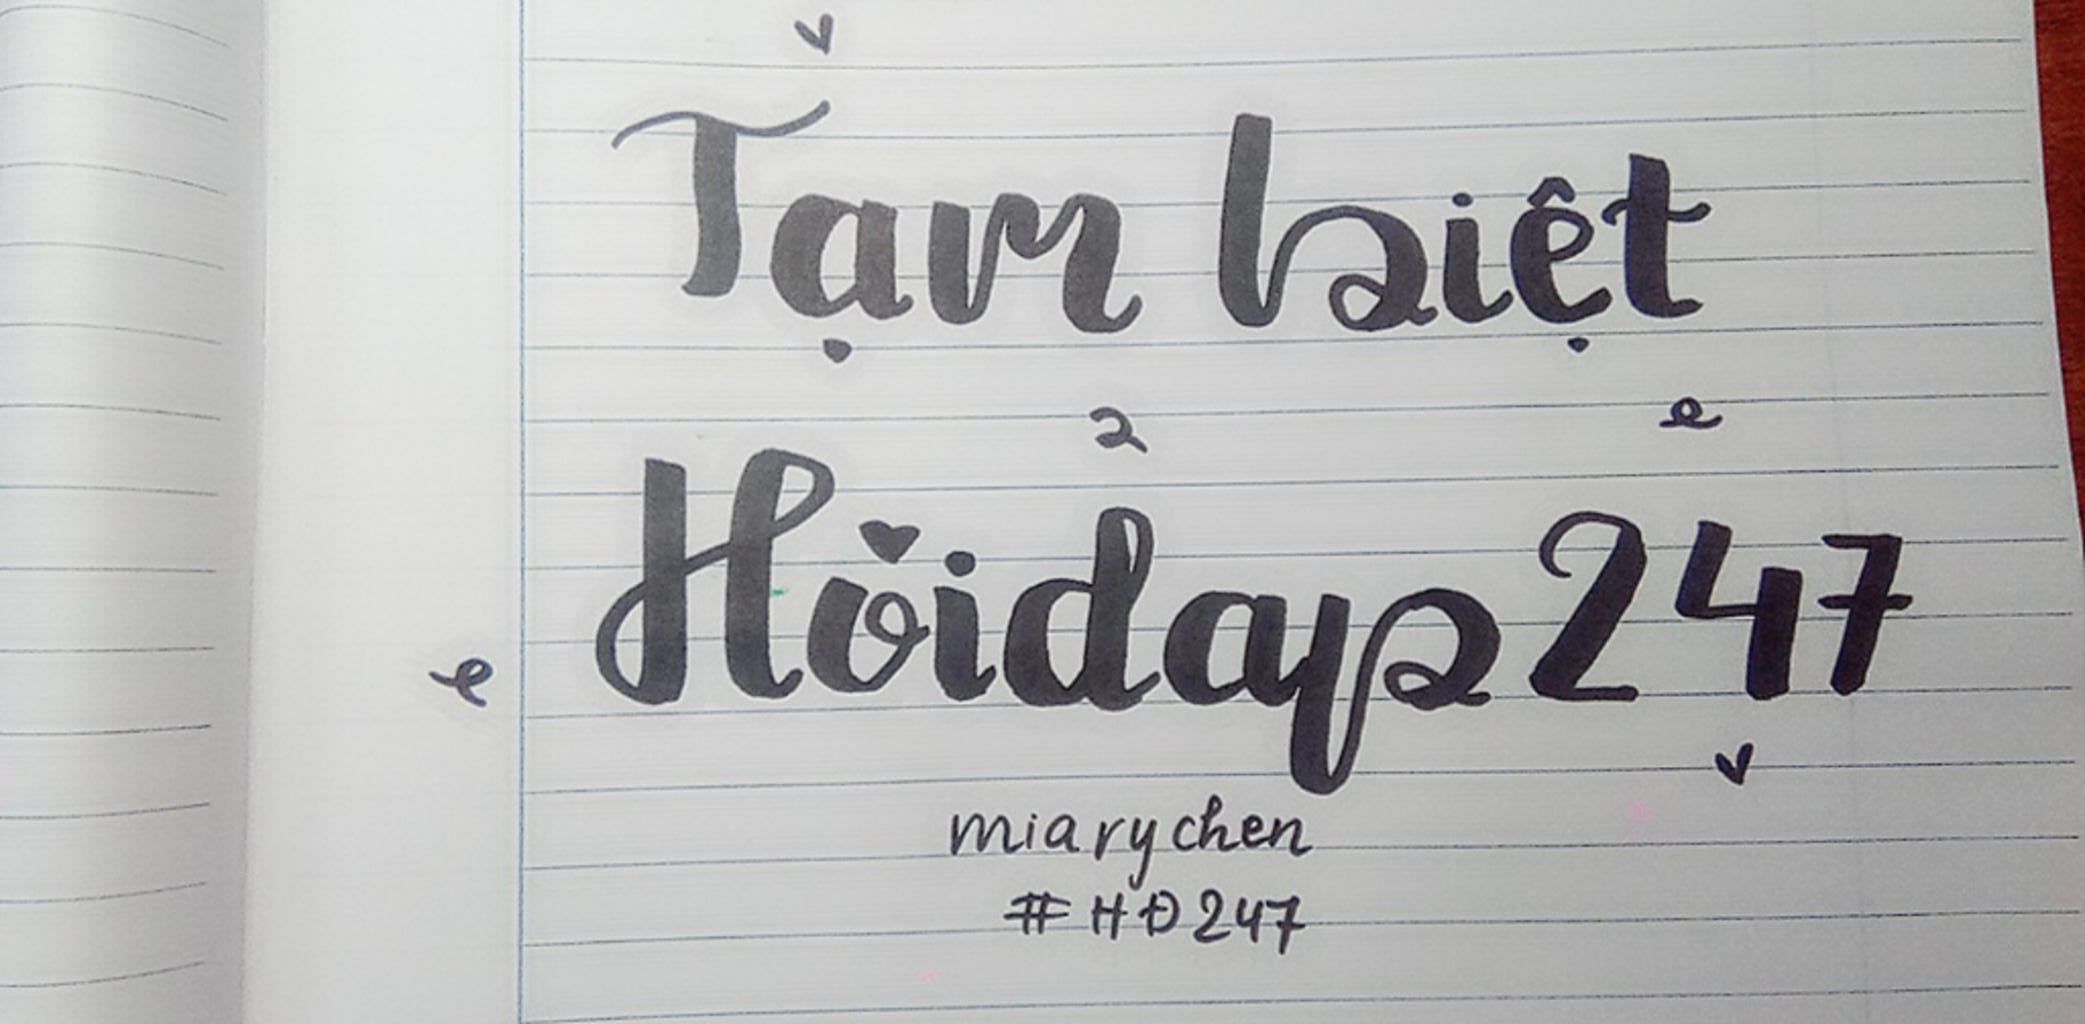 Tạm biệt
Hoidap247
miarychen
#HĐ247